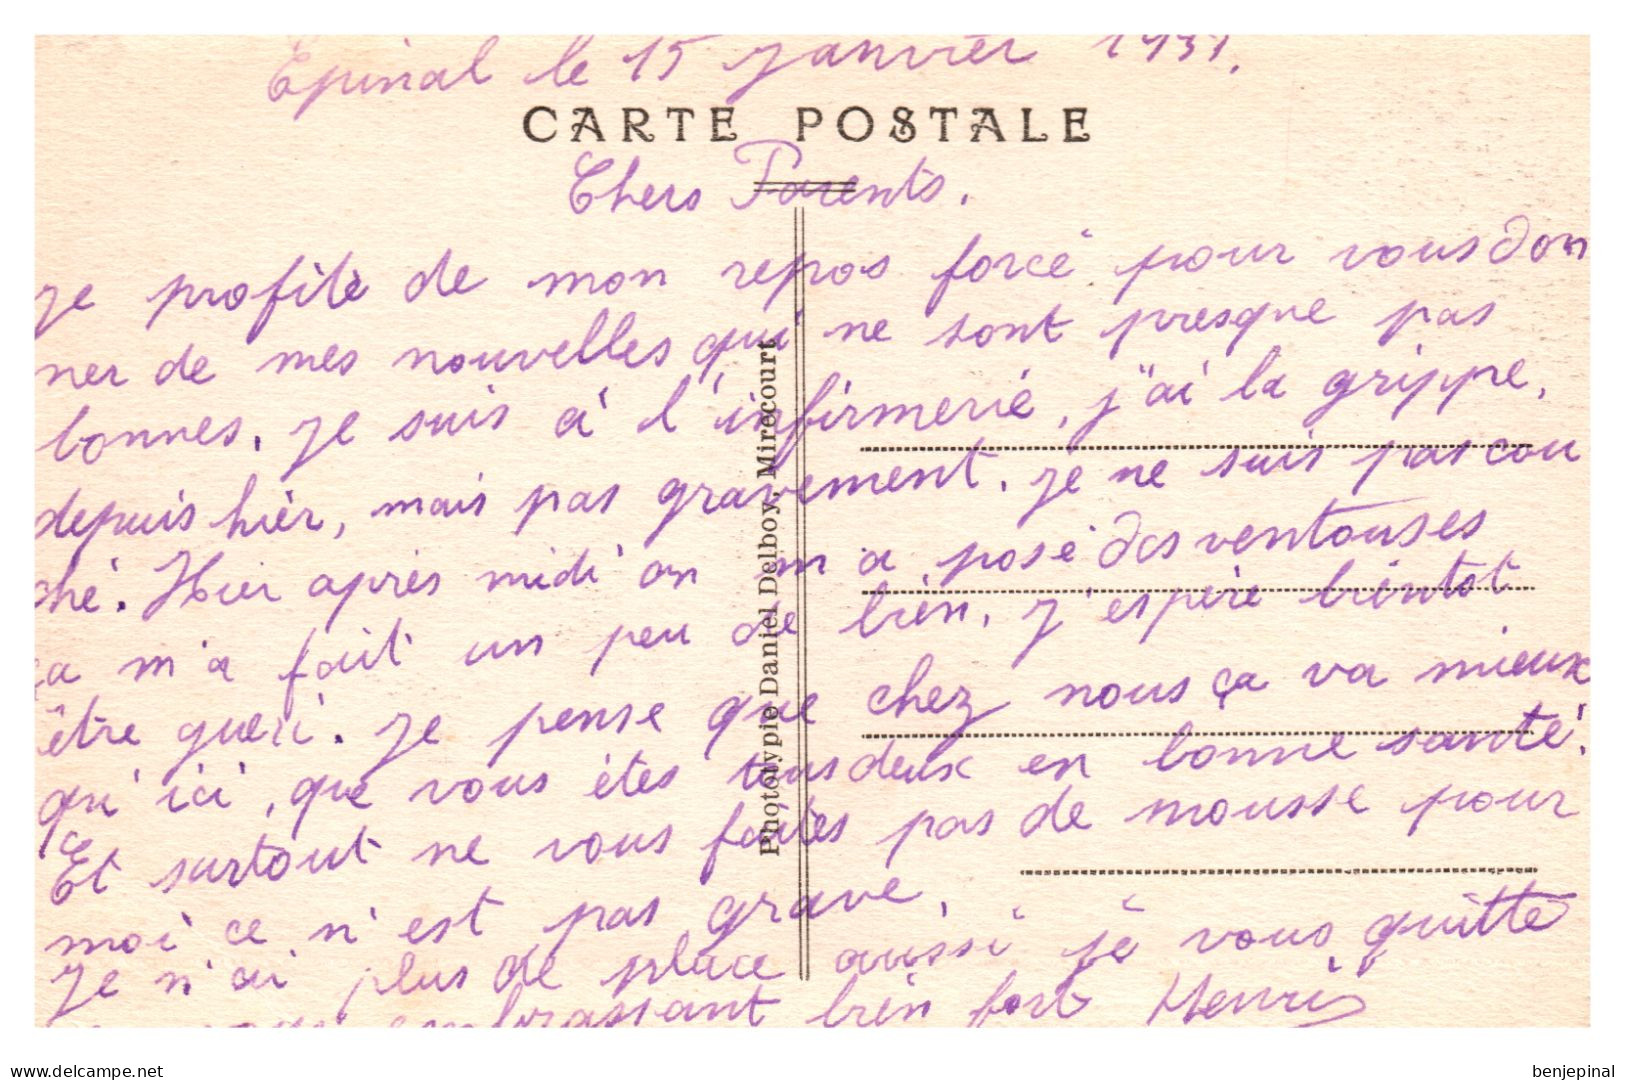 Epinal le 15 Janvier
CARTE POSTALE
Chers Parents.
Je profite de mon repos forcé pour vous don
ner de mes nouvelles qui ne sont presque pas
bonnes. Je suis à l'infirmerie, j'ai la grippe,
depuis hier, mais pas gravement. Je ne suis pas cou
ché. Hier après midi on m'a posé des ventouses
ça m'a fait un peu de bien. J'espère bientot
être gueri. Je pense que chez nous ça va mieux
qu'ici, que vous êtes tous deux en bonne santé.
Et surtout ne vous faites pas de mousse pour
moi ce n'est pas grave.
Je n'ai plus de place aussi je vous quitte
embrassant bien fort Henri
Phototypie Daniel Delboy, Mirecourt
www.delcampe.net
benjepinal